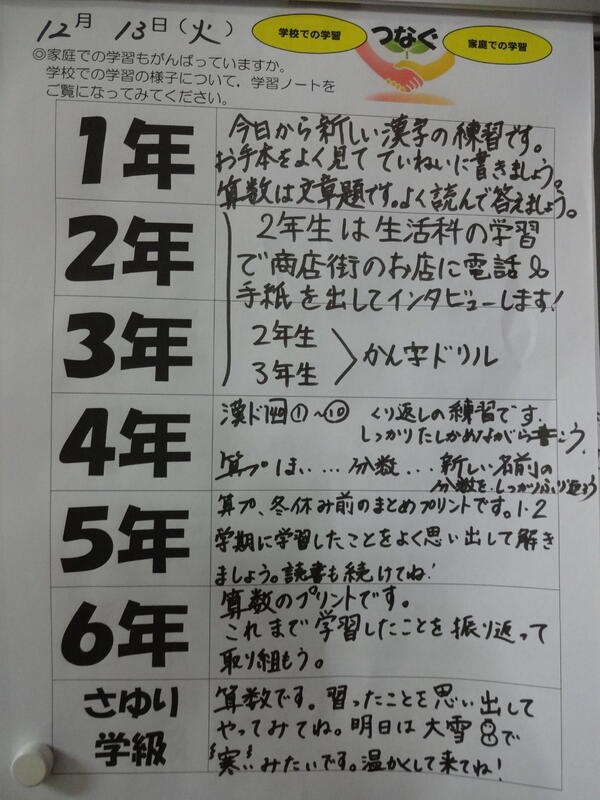 12月 13日(火)
学校での学習
つなぐ
家庭での学習
◎家庭での学習もがんばっていますか。
学校での学習の様子について,学習ノートを
ご覧になってみてください。
1年
今日から新しい漢字の練習です。
お手本をよく見て ていねいに書きましょう。
算数は文章題です。よく読んで答えましょう。
2年
2年生は生活科の学習
で商店街のお店に電話&
手紙を出してインタビューします!
3年
2年生
3年生
かん字ドリル
4年
漢ド ①~⑩ くり返しの練習です.
しっかりたしかめながら書こう.
算プは、... 分数... 新しい名前の
分数を.しっかりふり返ろう
5年
算プ、冬休み前のまとめプリントです。1・2
学期に学習したことをよく思い出して解き
ましょう。読書も続けてね!
6年
算数のプリントです。
これまで学習したことを振り返って
取り組もう。
さゆり
学級
算数です。習ったことを思い出して
やってみてね。明日は大雪で
"寒い"みたいです。温かくして来てね!